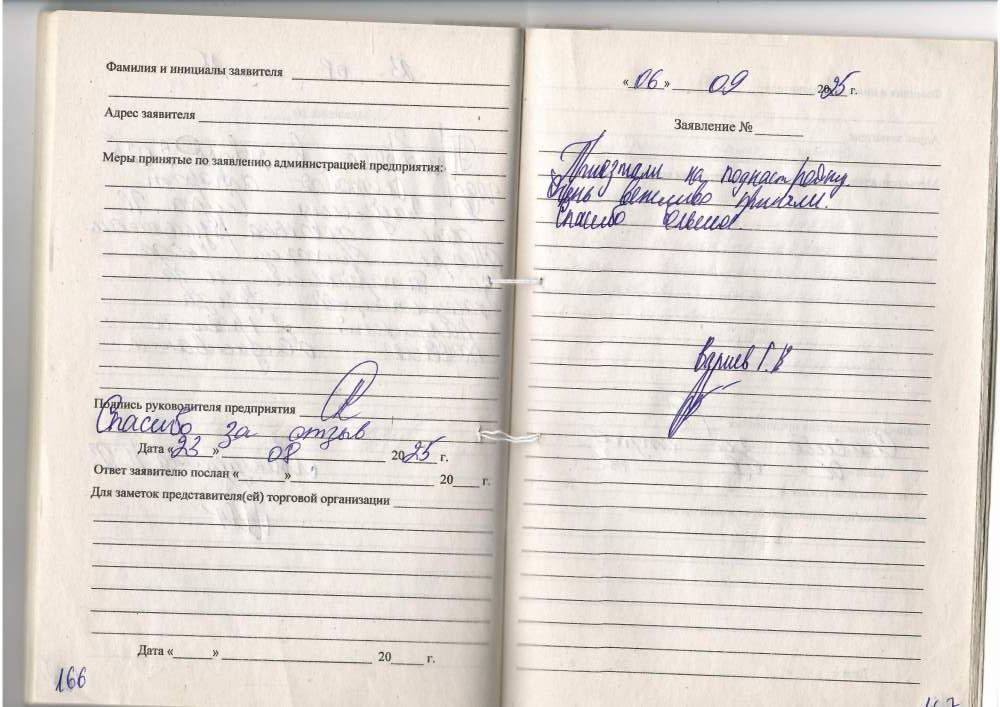 Фамилия и инициалы заявителя
Адрес заявителя
Меры принятые по заявлению администрацией предприятия:
Подпись руководителя предприятия
Спасибо за отзыв
Дата «23» 08 2025 г.
Ответ заявителю послан «____» ____ 20__ г.
Для заметок представителя(ей) торговой организации
Дата «____» ____ 20__ г.
166
«06» 09 2025 г.
Заявление №
Приезжали на поднастройку.
Очень вежливо приняли.
Спасибо